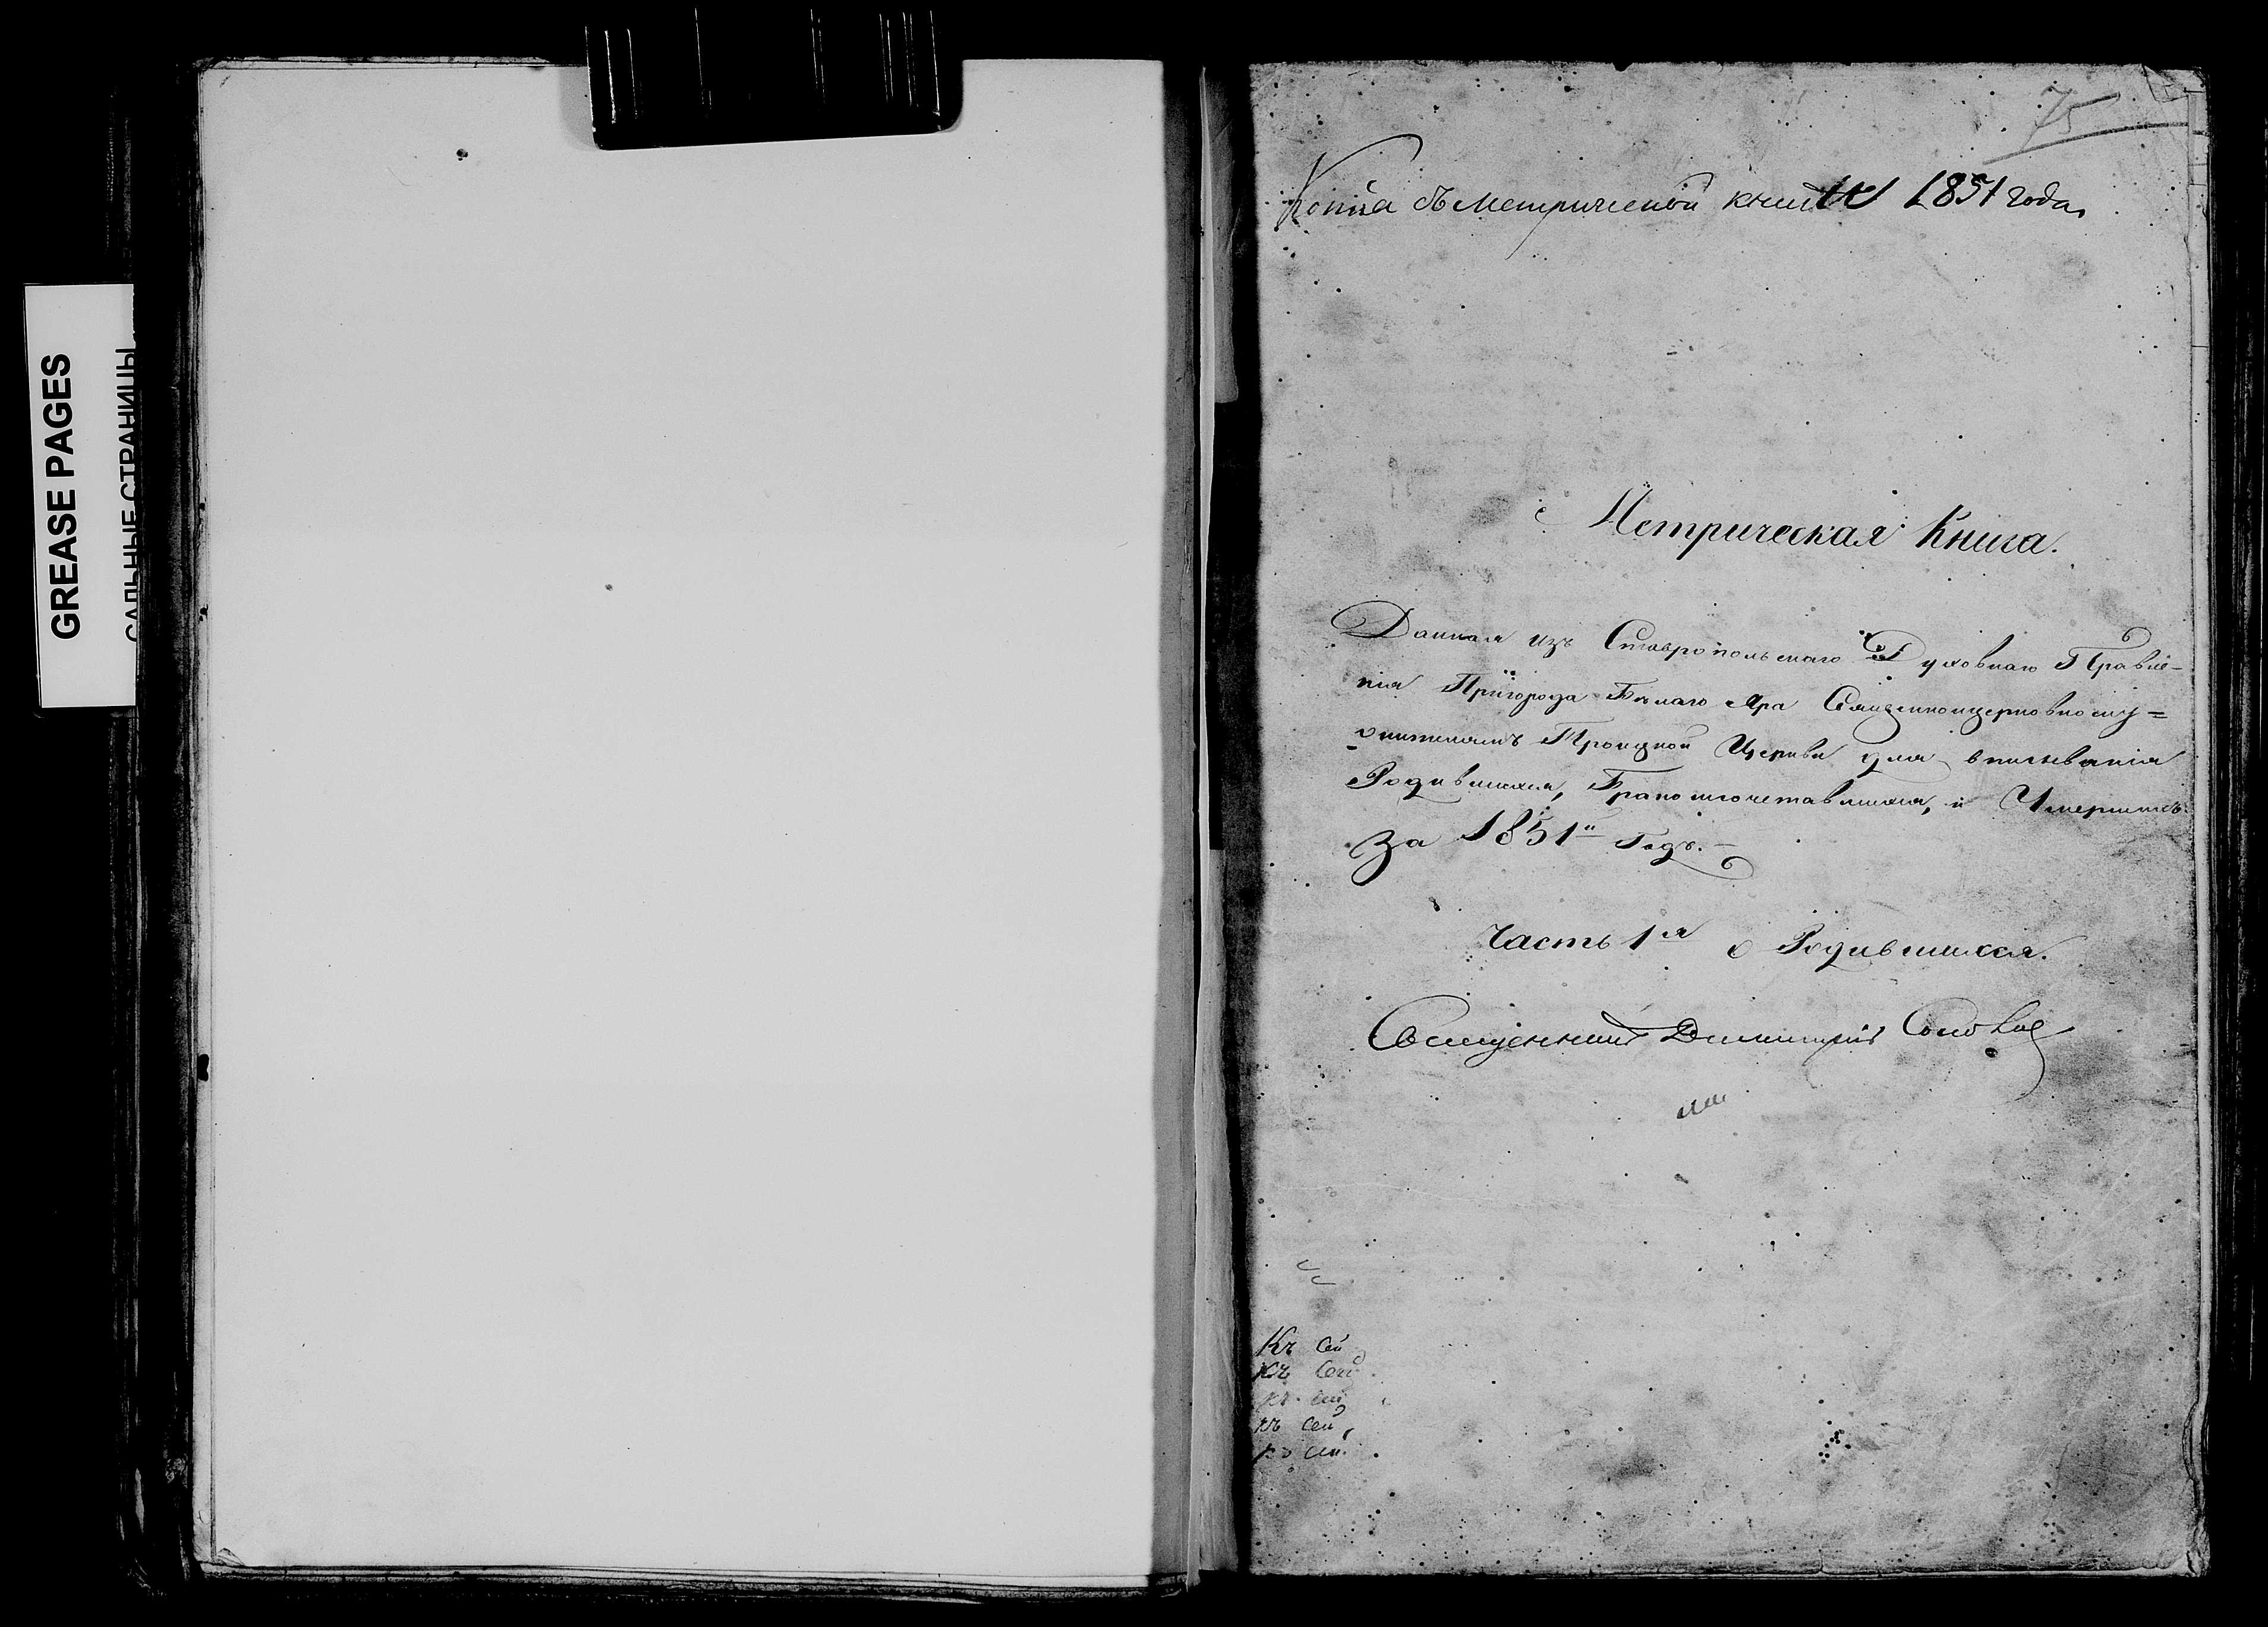 GREASE PAGES
САЛЬНЫЕ СТРАНИЦЫ
75
Копiя съ метрической книги 1851 года
Метрическая Книга.
Данная изъ Ставропольскаго Духовнаго Правле-
нiя Пригорода Белаго Яра Священноцерковнослу=
жителямъ Троицкой Церкви для вписыванiя
Родившихся, Бракомсочетавшихся, и Умершихъ
За 1851й Годъ.-
Часть 1я о Родившихся.
Священникъ Димитрiй
Къ сей
Къ сей
къ сей
къ сей